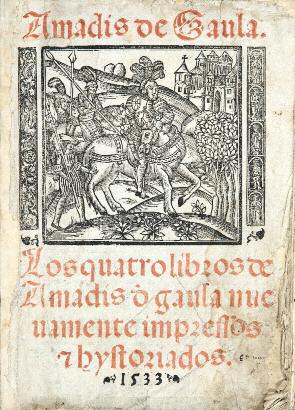 Amadis de Gaula.
Los quatro libros de
Amadis ď gaula nue
uamente impressos
⁊ hystoriados.
1533